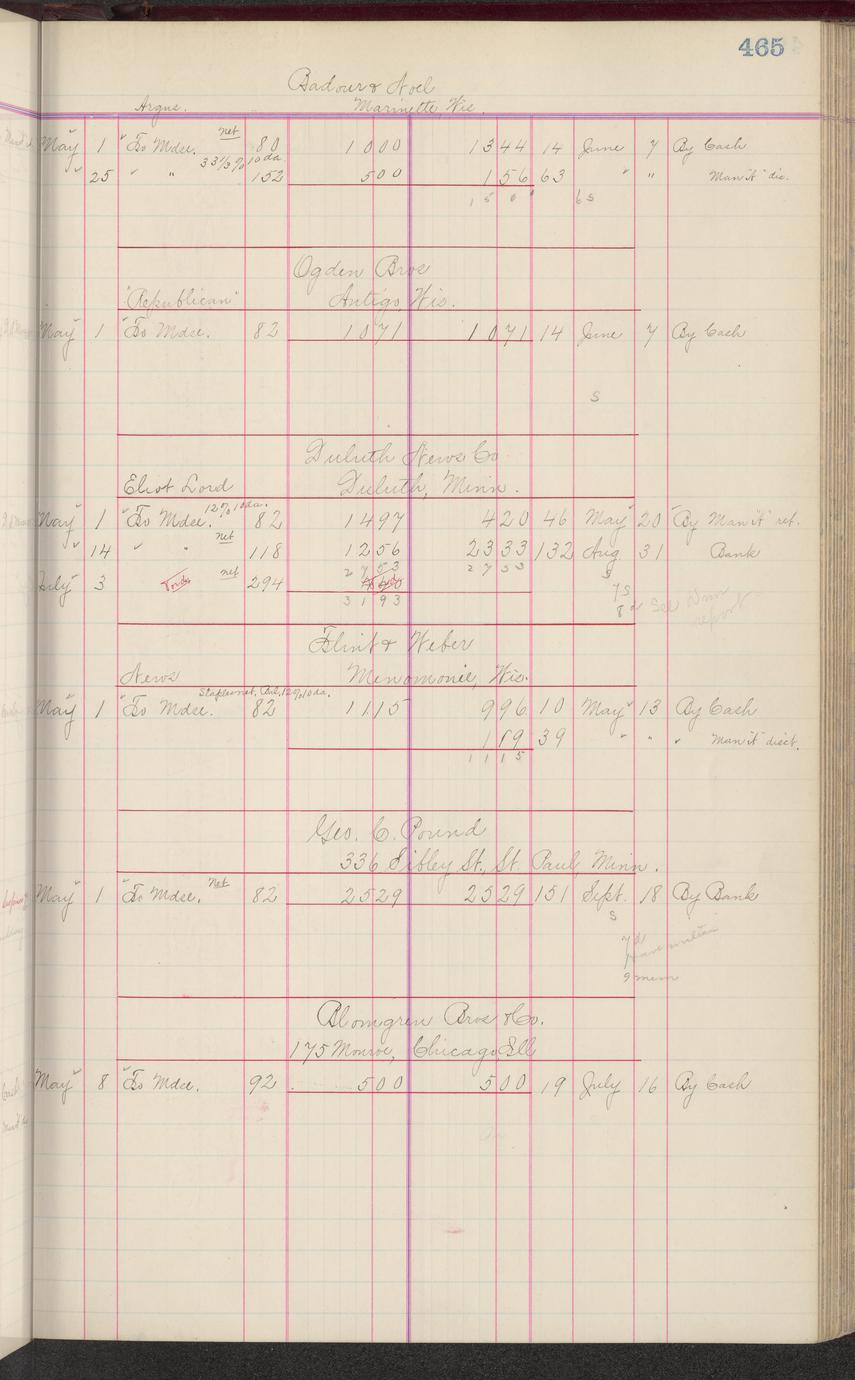 465
Badour & Noel
Argus. Marinette Wis.
May 1 To Mdse. net 80 1000 1344 14 June 7 By Cash
33 1/3 % 10 da.
" 25 " " 152 500 156 63 " " Man'it" dis.
150 65
Ogden Bros
"Republican" Antigo, Wis.
May 1 To Mdse. 82 1071 1071 14 June 7 By Cash
S
Duluth News Co
Eliot Lord Duluth, Minn.
May 1 To Mdse. 12% 10 da. 82 1497 420 46 May 20 By Man'it" ret.
" 14 " " net 118 1256 2333 132 Aug. 31 Bank
2753 2753 S
July 3 net 294
3193 7 S
8 See Dun report
Flint & Weber
News Menomonie, Wis.
Staples net, Bal, 12% 10 da.
May 1 To Mdse. 82 1115 996 10 May 13 By Cash
119 39 " " " Man'it" disct.
1115
Geo. C. Pound
336 Sibley St., St. Paul, Minn.
May 1 To Mdse. Net 82 2529 2529 151 Sept. 18 By Bank
S
7
have written
9
Blomgren Bros & Co.
175 Monroe, Chicago Ill
May 8 To Mdse. 92 500 500 19 July 16 By Cash